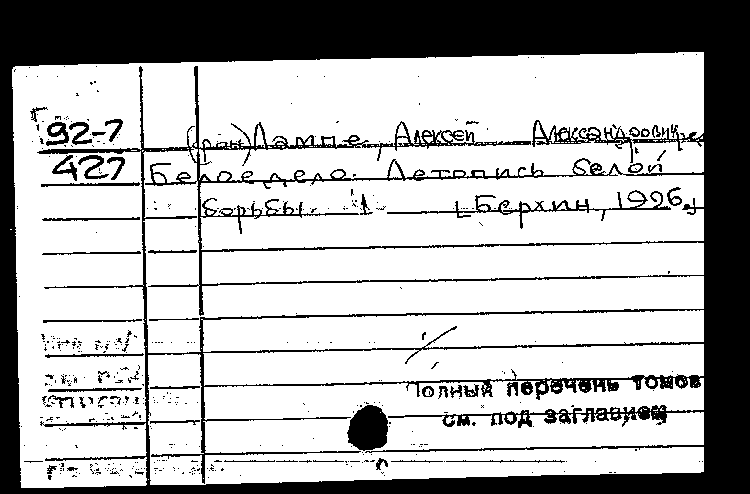 92-7
427
(фон) Лампе, Алексей Александрович, ред
Белое дело. Летопись белой
борьбы. 1 [Берлин, 1926.]
Полный перечень томов
см. под заглавием